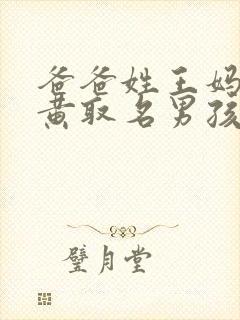 爸爸姓王妈
黄取名男孩
璧月堂